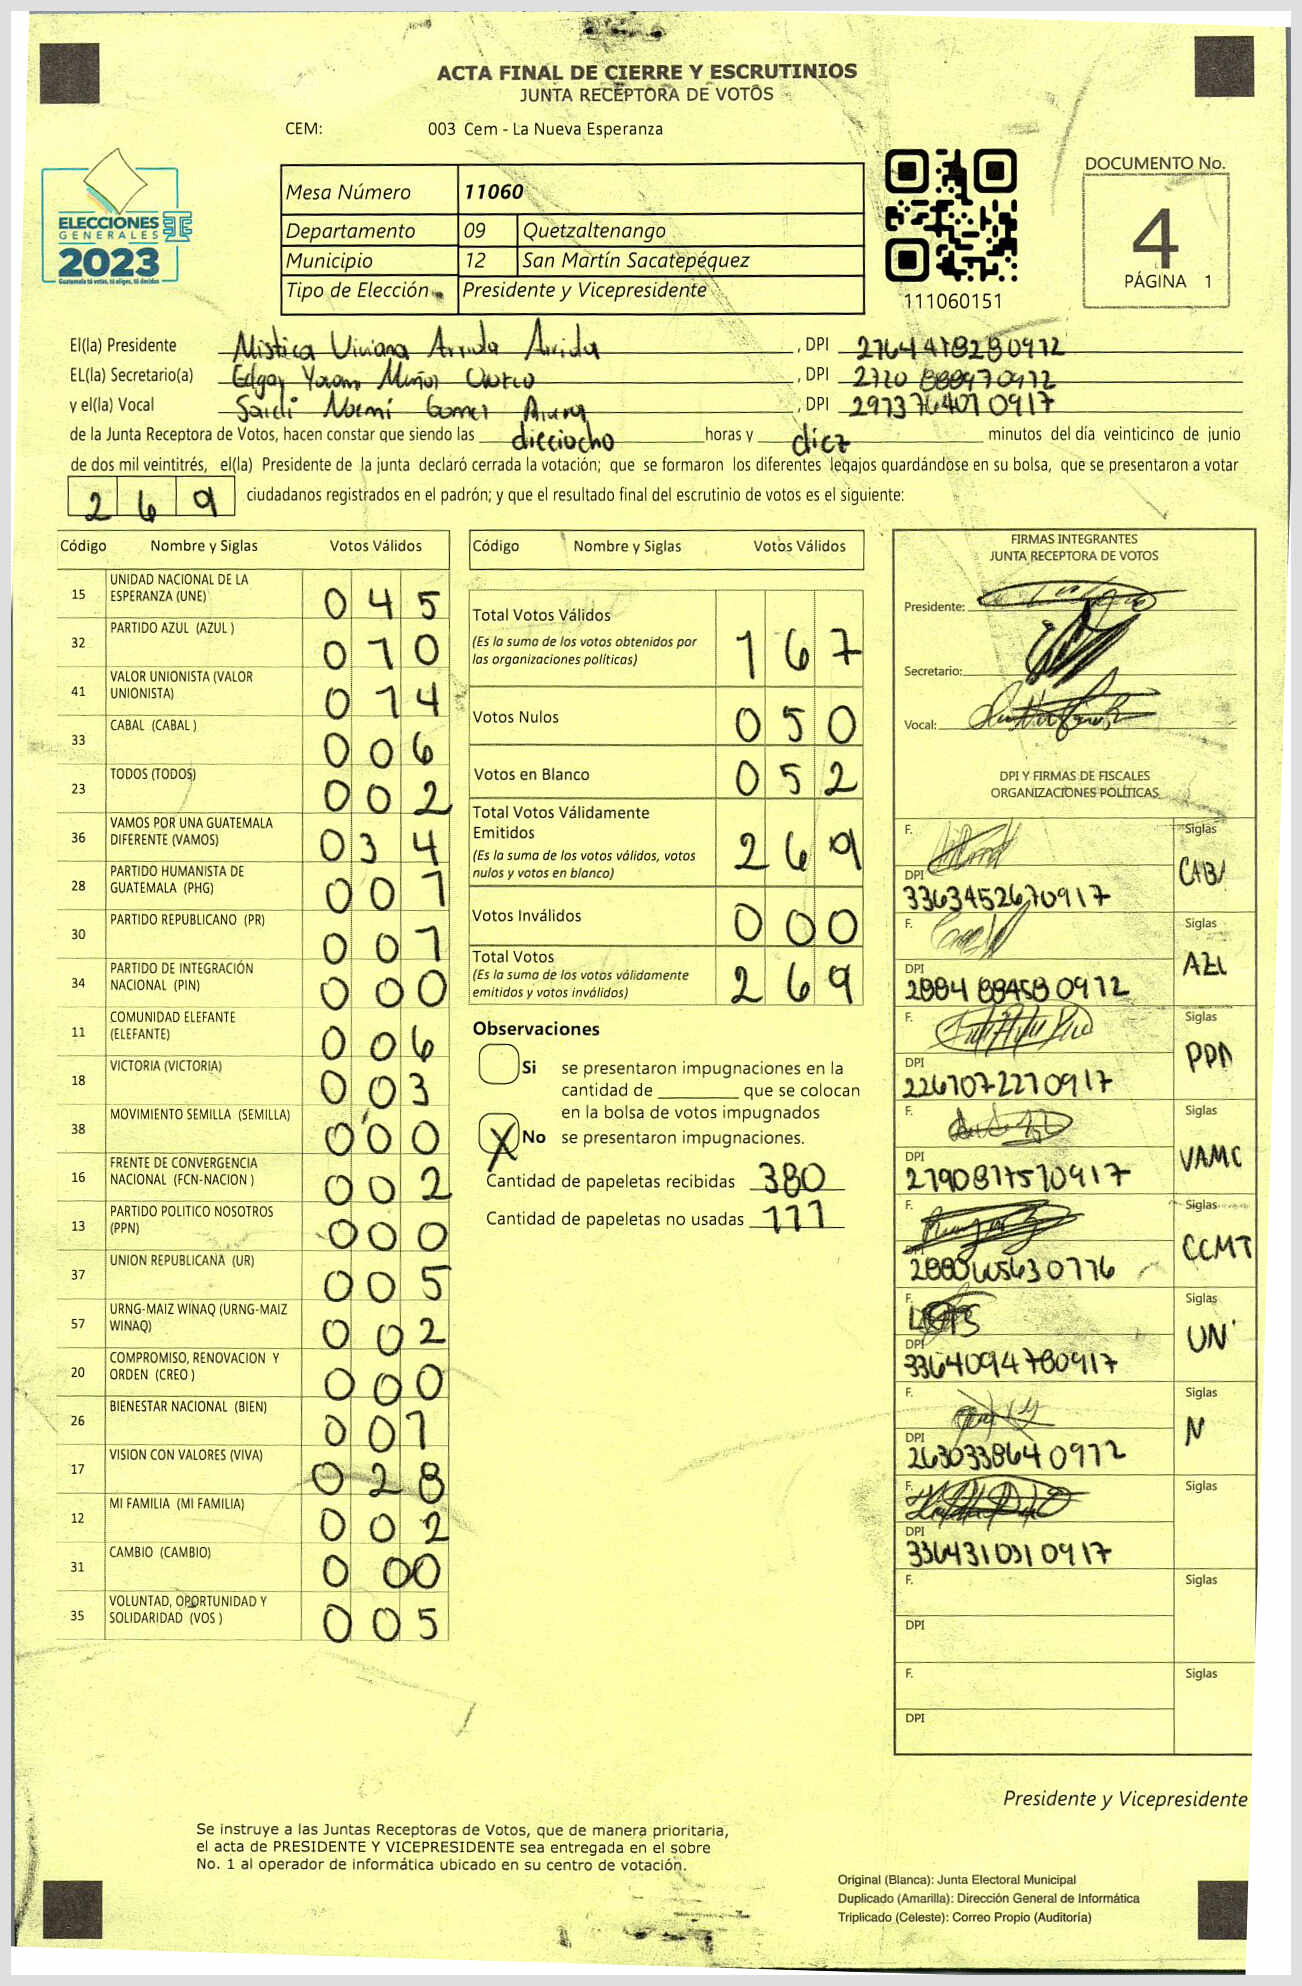 ACTA FINAL DE CIERRE Y ESCRUTINIOS
JUNTA RECEPTORA DE VOTOS
CEM: 003 Cem - La Nueva Esperanza
ELECCIONES
GENERALES
2023
Guatemala tú votas, tú eliges, tú decides
Mesa Número 11060
Departamento 09 Quetzaltenango
Municipio 12 San Martín Sacatepéquez
Tipo de Elección Presidente y Vicepresidente
111060151
DOCUMENTO No.
4
PÁGINA 1
El(la) Presidente Mistica Viviana , DPI
EL(la) Secretario(a) Edgar , DPI
y el(la) Vocal Saidi Noemí , DPI 2973764010917
de la Junta Receptora de Votos, hacen constar que siendo las dieciocho horas y diez minutos del día veinticinco de junio
de dos mil veintitrés, el(la) Presidente de la junta declaró cerrada la votación; que se formaron los diferentes legajos guardándose en su bolsa, que se presentaron a votar
269 ciudadanos registrados en el padrón; y que el resultado final del escrutinio de votos es el siguiente:
Código Nombre y Siglas Votos Válidos
15 UNIDAD NACIONAL DE LA ESPERANZA (UNE) 045
32 PARTIDO AZUL (AZUL ) 010
41 VALOR UNIONISTA (VALOR UNIONISTA) 014
33 CABAL (CABAL ) 006
23 TODOS (TODOS) 002
36 VAMOS POR UNA GUATEMALA DIFERENTE (VAMOS) 034
28 PARTIDO HUMANISTA DE GUATEMALA (PHG) 001
30 PARTIDO REPUBLICANO (PR) 001
34 PARTIDO DE INTEGRACIÓN NACIONAL (PIN) 000
11 COMUNIDAD ELEFANTE (ELEFANTE) 006
18 VICTORIA (VICTORIA) 003
38 MOVIMIENTO SEMILLA (SEMILLA) 000
16 FRENTE DE CONVERGENCIA NACIONAL (FCN-NACION ) 002
13 PARTIDO POLITICO NOSOTROS (PPN) 000
37 UNION REPUBLICANA (UR) 005
57 URNG-MAIZ WINAQ (URNG-MAIZ WINAQ) 002
20 COMPROMISO, RENOVACION Y ORDEN (CREO ) 000
26 BIENESTAR NACIONAL (BIEN) 001
17 VISION CON VALORES (VIVA) 028
12 MI FAMILIA (MI FAMILIA) 002
31 CAMBIO (CAMBIO) 000
35 VOLUNTAD, OPORTUNIDAD Y SOLIDARIDAD (VOS ) 005
Código Nombre y Siglas Votos Válidos
Total Votos Válidos 167
(Es la suma de los votos obtenidos por
las organizaciones políticas)
Votos Nulos 050
Votos en Blanco 052
Total Votos Válidamente
Emitidos 269
(Es la suma de los votos válidos, votos
nulos y votos en blanco)
Votos Inválidos 000
Total Votos 269
(Es la suma de los votos válidamente
emitidos y votos inválidos)
Observaciones
Si se presentaron impugnaciones en la
cantidad de ________ que se colocan
en la bolsa de votos impugnados
X No se presentaron impugnaciones.
Cantidad de papeletas recibidas 380
Cantidad de papeletas no usadas 111
FIRMAS INTEGRANTES
JUNTA RECEPTORA DE VOTOS
Presidente:
Secretario:
Vocal:
DPI Y FIRMAS DE FISCALES
ORGANIZACIONES POLÍTICAS
F. Siglas
DPI
3363452670917
F. Siglas
DPI
2884884580912
F. Siglas
DPI
2261072210917
F. Siglas
DPI
2790817510917
F. Siglas
CCMT
F. Siglas
DPI
3364094780917
F. Siglas N
DPI
2630338640912
F. Siglas
DPI
3364310310917
F. Siglas
DPI
F. Siglas
DPI
Presidente y Vicepresidente
Se instruye a las Juntas Receptoras de Votos, que de manera prioritaria,
el acta de PRESIDENTE Y VICEPRESIDENTE sea entregada en el sobre
No. 1 al operador de informática ubicado en su centro de votación.
Original (Blanca): Junta Electoral Municipal
Duplicado (Amarilla): Dirección General de Informática
Triplicado (Celeste): Correo Propio (Auditoría)